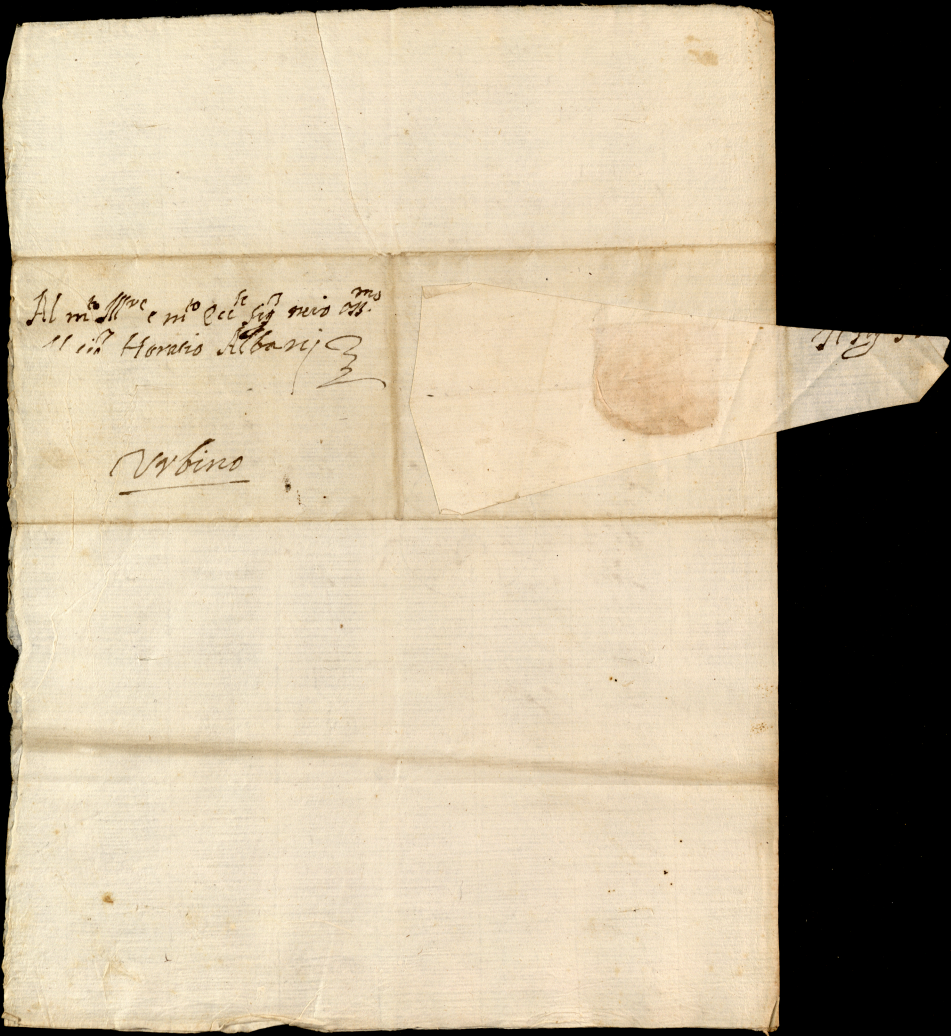 Al m.to Ill.re e m.to Ecc.te Sig.r mio oss.mo
Il Sig.r Horatio Albanj
Urbino
Il Sig.r